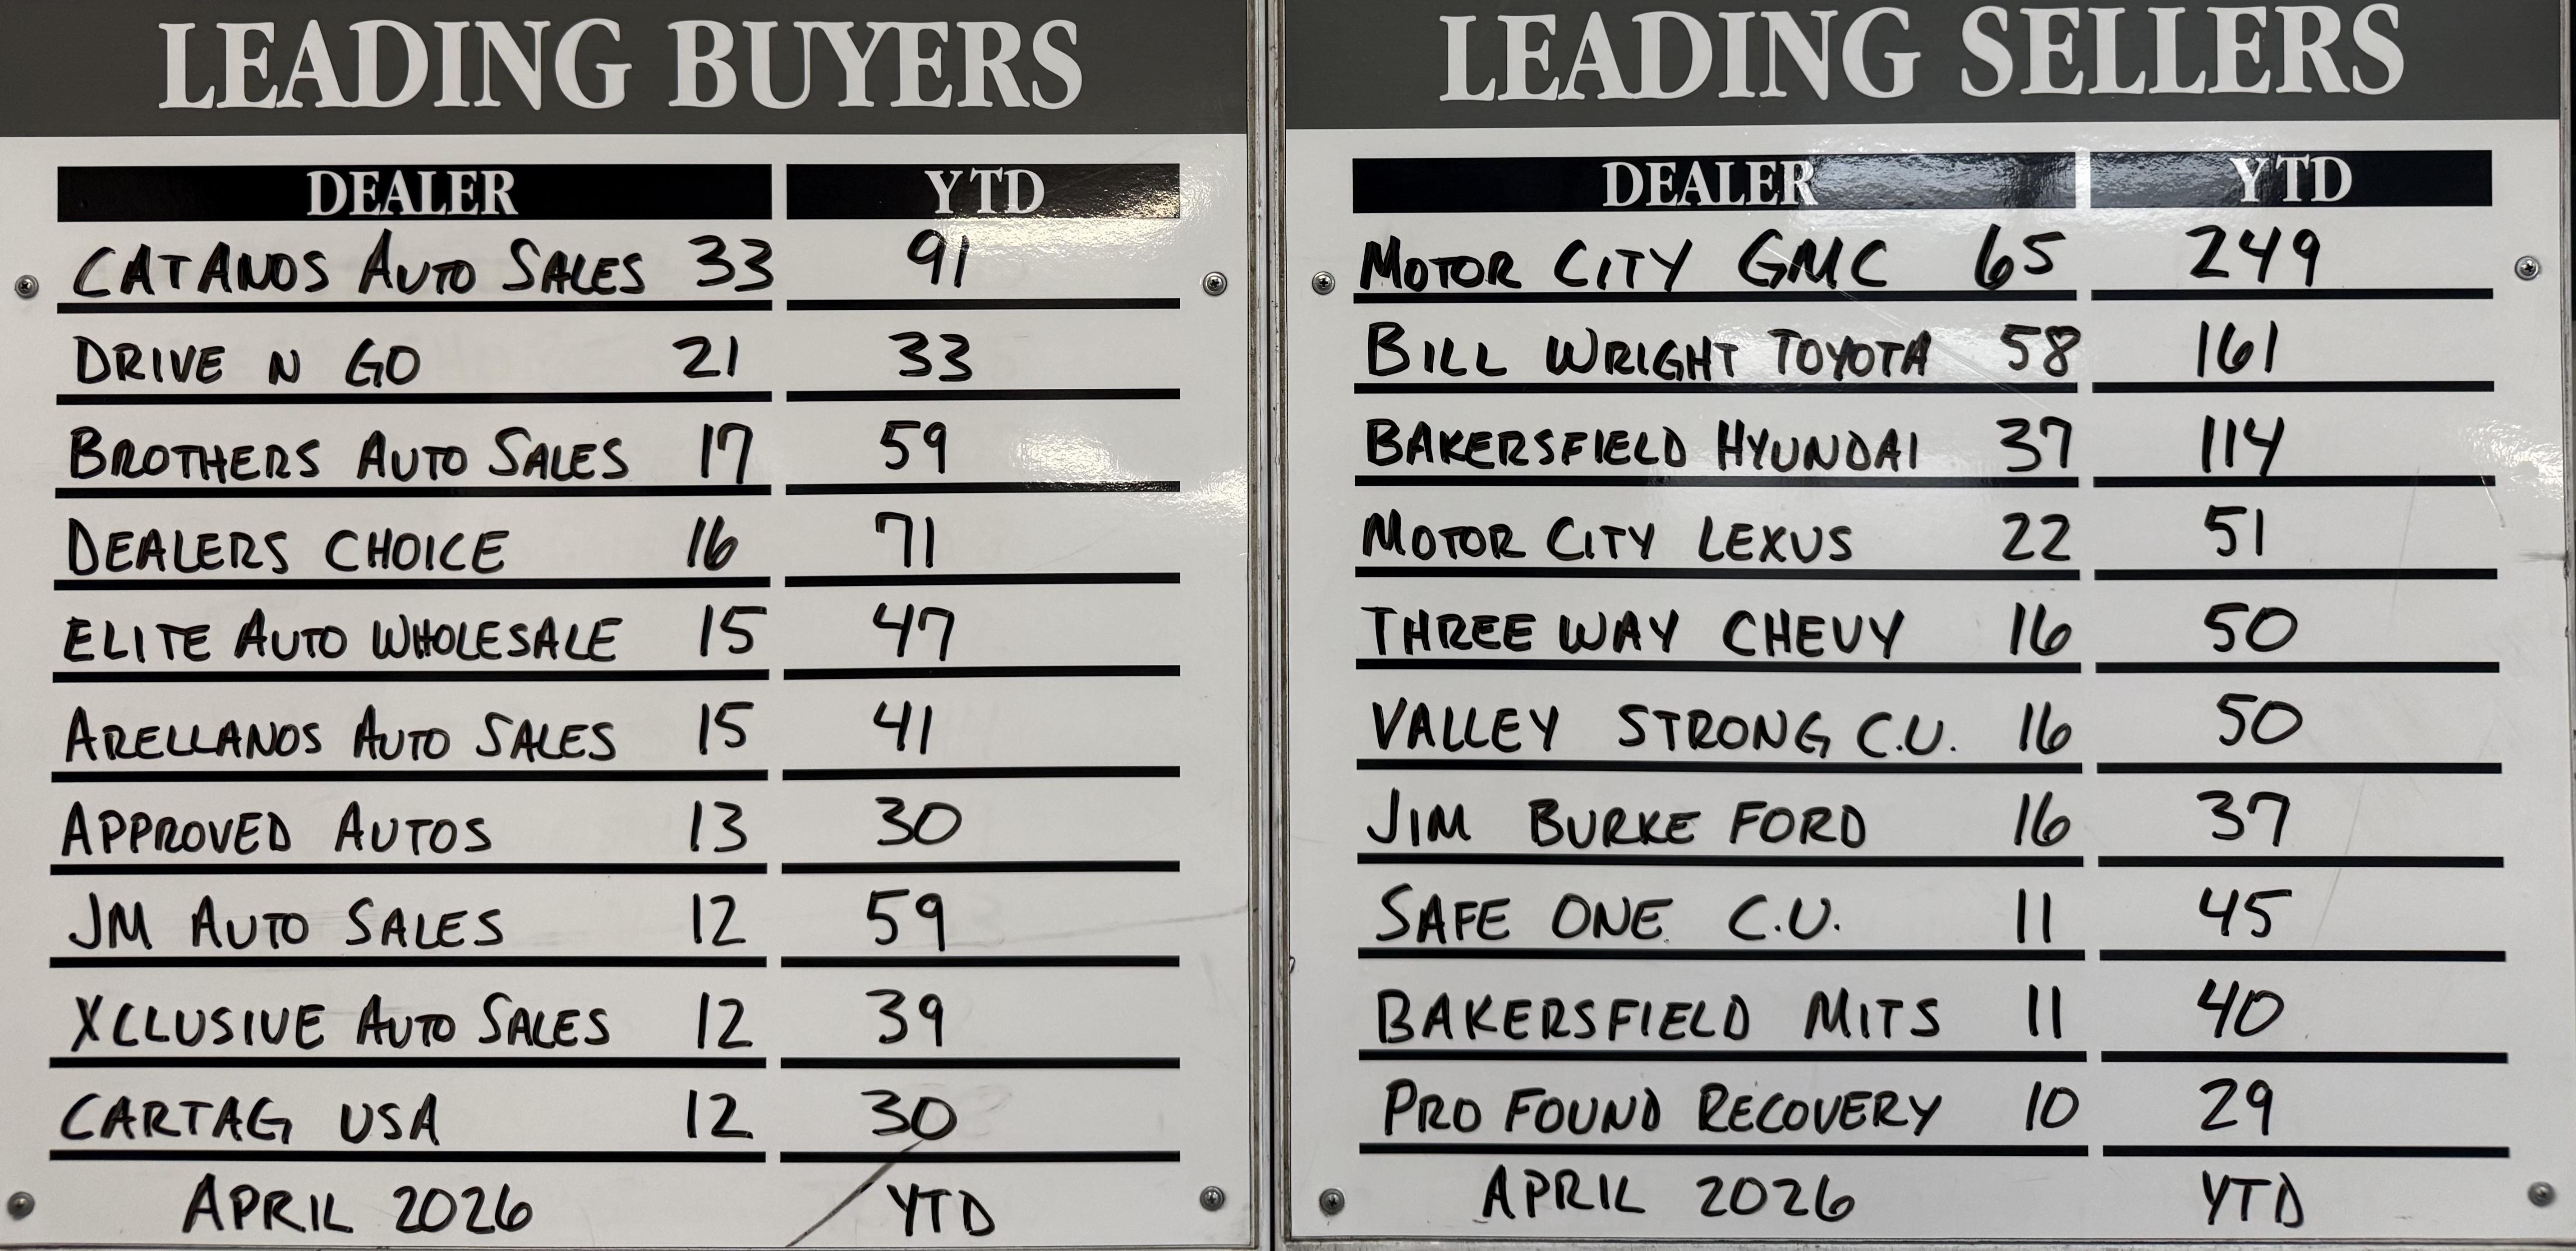 LEADING BUYERS
DEALER YTD
CATANOS AUTO SALES 33 91
DRIVE N GO 21 33
BROTHERS AUTO SALES 17 59
DEALERS CHOICE 16 71
ELITE AUTO WHOLESALE 15 47
ARELLANOS AUTO SALES 15 41
APPROVED AUTOS 13 30
JM AUTO SALES 12 59
XCLUSIVE AUTO SALES 12 39
CARTAG USA 12 30
APRIL 2026 YTD
LEADING SELLERS
DEALER YTD
MOTOR CITY GMC 65 249
BILL WRIGHT TOYOTA 58 161
BAKERSFIELD HYUNDAI 37 114
MOTOR CITY LEXUS 22 51
THREE WAY CHEVY 16 50
VALLEY STRONG C.U. 16 50
JIM BURKE FORD 16 37
SAFE ONE C.U. 11 45
BAKERSFIELD MITS 11 40
PRO FOUND RECOVERY 10 29
APRIL 2026 YTD